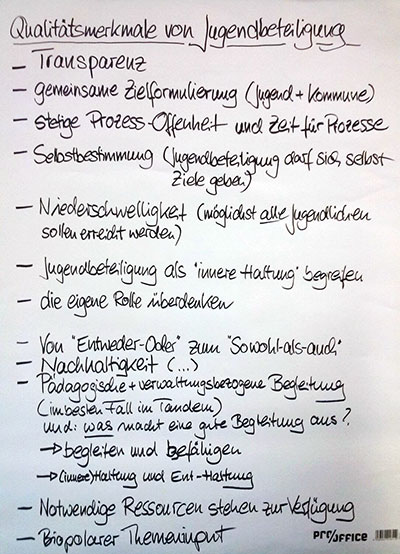 Qualitätsmerkmale von Jugendbeteiligung
- Transparenz
- gemeinsame Zielformulierung (Jugend + Kommune)
- stetige Prozess-Offenheit und Zeit für Prozesse
- Selbstbestimmung (Jugendbeteiligung darf sich selbst
Ziele geben)
- Niederschwelligkeit (möglichst alle Jugendlichen
sollen erreicht werden)
- Jugendbeteiligung als "innere Haltung" begreifen
- die eigene Rolle überdenken
- Von "Entweder-Oder" zum "Sowohl-als-auch"
- Nachhaltigkeit (...)
- Pädagogische + verwaltungsbezogene Begleitung
(im besten Fall im Tandem)
und: was macht eine gute Begleitung aus?
→ begleiten und befähigen
→ (innere) Haltung und Ent-Haltung
- Notwendige Ressourcen stehen zur Verfügung
- Biopolarer Themeninput
PRO/OFFICE